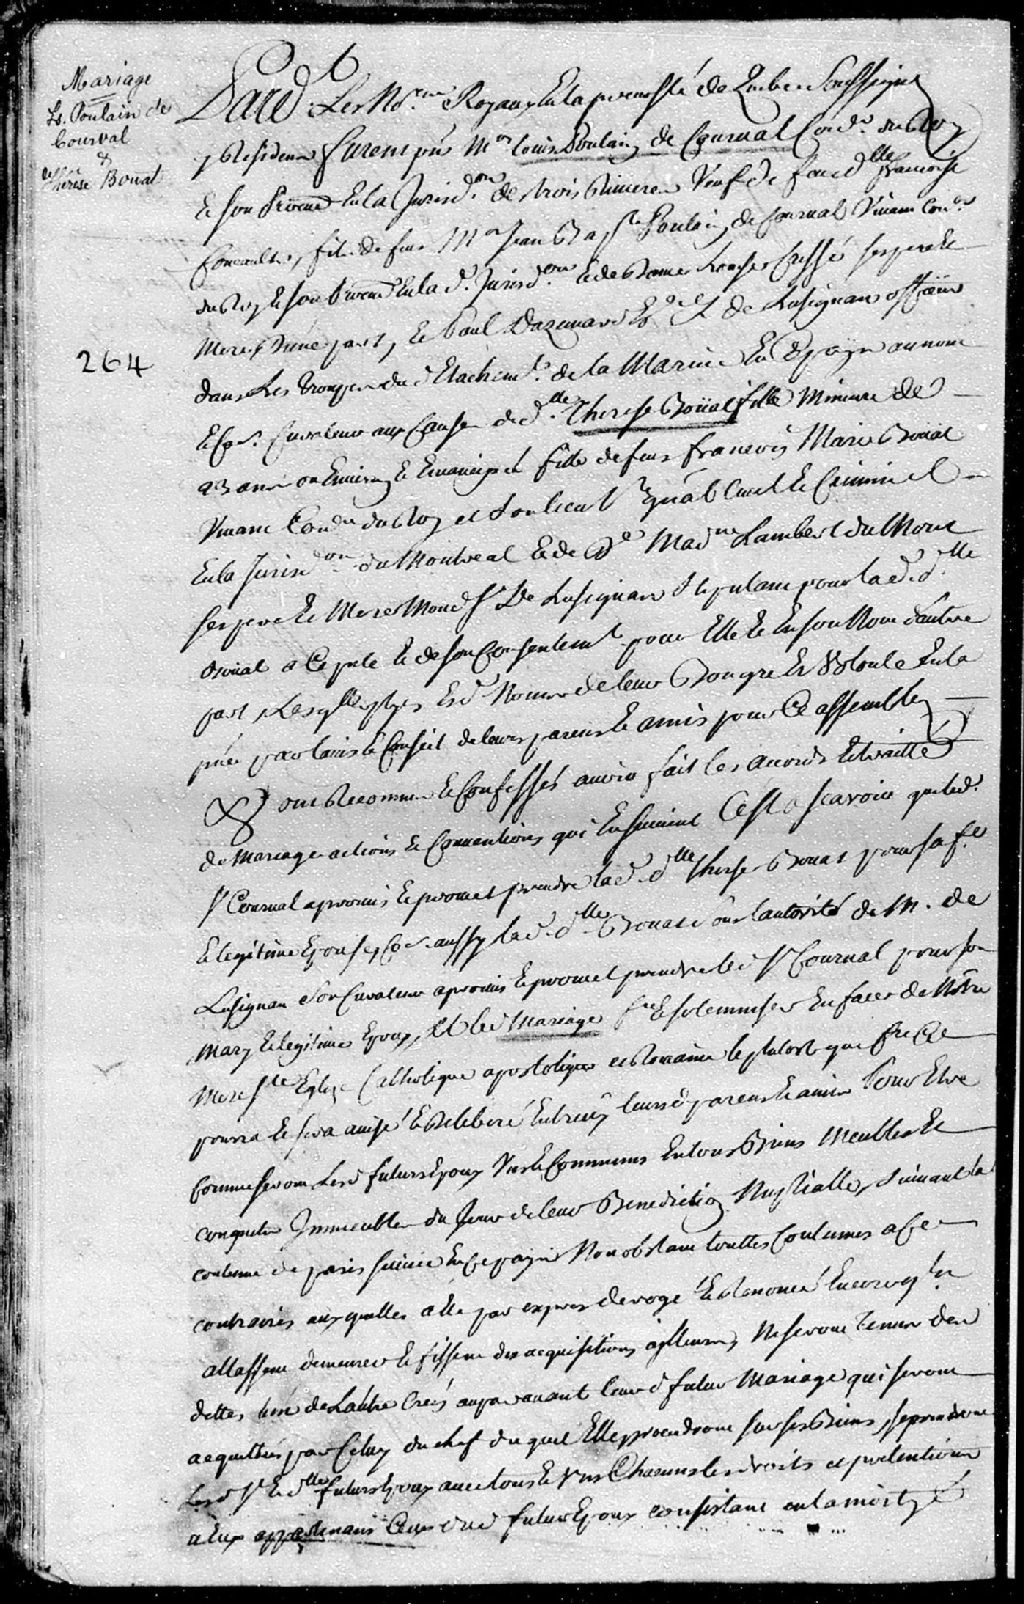 Mariage
Ls. Poulain de
Courval
&
Therese Bouat
264
Pard. Les Nores Royaux En la prevosté de Quebec Soussignés
y Residens furent pnts Mr Louis Poulain de Courval Coner. du Roy
Et Son Procur En la Jurisdon de trois Rivieres Veuf de feue dlle francoise
fils de feu Mr Jean Bapte Poulain de Courval Vivant Coner
du Roy Et Son Procur En la d. Jurisdon Et de Dame Louise Cressé ses pere Et
Mere d'une part, Et Paul Dazemard Er Sr de Lusignan officier
dans Les troupes du détachemt. de la Marine En Ce pays au nom
Et Co. Curateur aux Causes de dlle Therese Boüat fille Mineure de
23 ans ou Environ Et Emancipée fille de feu francois Marie Bouat
Vivant Coner du Roy et Son lieut Gnal Civil Et Criminel
En la Jurisdon du Montreal Et de De Madne Lambert du Mont
ses pere Et Mere Mond Sr De Lusignan Stipulant pour lad. dlle
Bouat a Ce pnte Et de Son Consentemt pour Elle Et En Son Nom d'autre
part, Lesqlles ptyes Esd. Noms de leur Bon gré Et Volonté En la
pnce par lavis Et Conseil de leurs parens Et amis pour Ce assemblés
Ont Reconnu Et Confessés avoir fait les accords Et traitté
de Mariage actions Et Conventions qui Ensuivent C'est a scavoir que led.
Sr Courval a promis Et promet prendre lad. dlle Therese Bouat pour sa fe
Et legitime Epouse, Co. aussy lad. dlle Bouat sous l'autorité de M. de
Lusignan Son Curateur a promis Et promet prendre led Sr Courval pour son
Mary Et legitime Epoux, Et led Mariage fre Et solemniser En face de Notre
Mere Ste Eglise Catholique apostolique et Romaine le plutost que fre Ce
pourra Et sera avisé Et Deliberé Entr'eux leursd parens Et amis Pour Etre
Comme seront Lesd futurs Epoux Uns Et Communs En tous Biens Meubles Et
conquets Immeubles du Jour de leur Benediction Nuptialle, Suivant la
coutume de paris suivie En Ce pays Nonobstant touttes Coutumes a Ce
contraires auxquelles a Eté par exprés derogé Et Renoncé Encorequ'Ils
allassent demeurer Et fissent des acquisitions ailleurs, Ne seront tenus des
dettes l'un de L'autre Créés auparavant leurd futur Mariage qui seront
acquittés par Celuy du chef duquel Elles procederont sur ses Biens, se prendront
Lesd Sr Et dlle futurs Epoux avec tous Et Uns Chacuns les droits et pretentions
a Eux appartenans Ceux dud futur Epoux consistant en la moityé